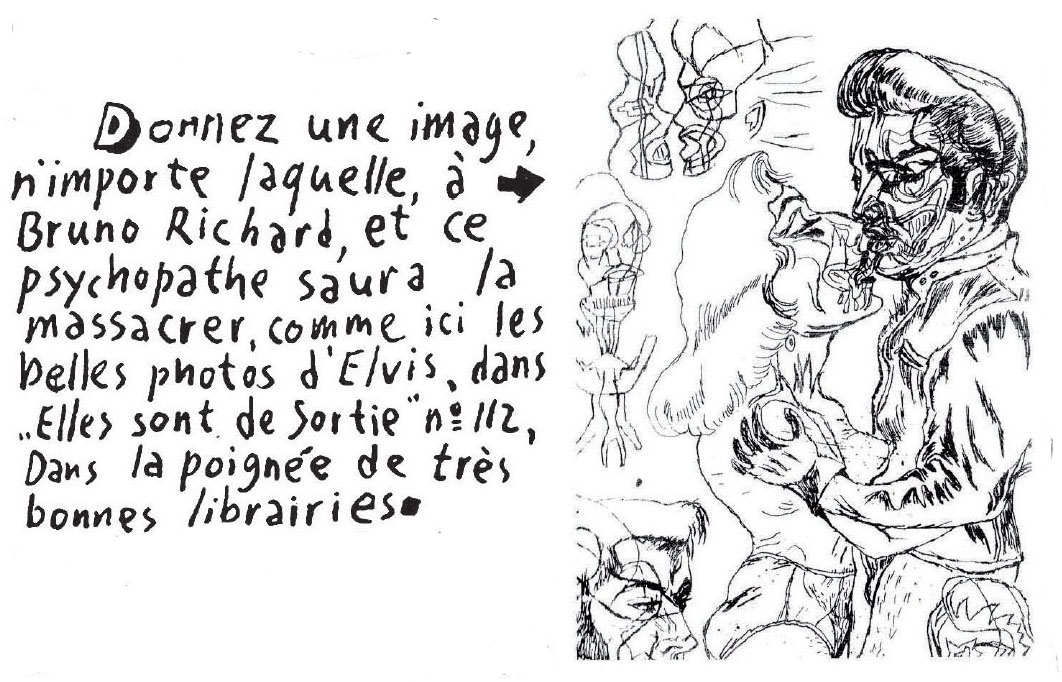 Donnez une image,
n'importe laquelle, à →
Bruno Richard, et ce
psychopathe saura la
massacrer, comme ici les
belles photos d'Elvis, dans
„Elles sont de Sortie" nº 112,
Dans la poignée de très
bonnes librairies.